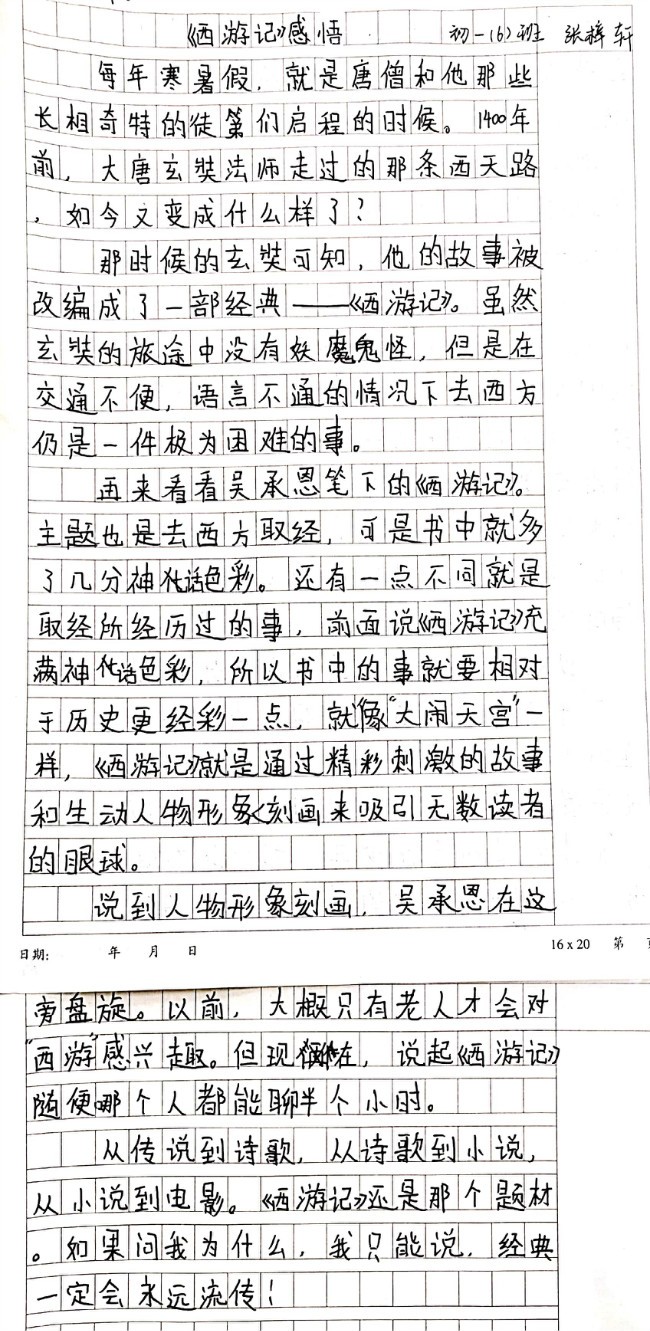 《西游记》感悟 初一(6)班 张梓轩
每年寒暑假，就是唐僧和他那些
长相奇特的徒第们启程的时候。1400年
前，大唐玄奘法师走过的那条西天路
，如今又变成什么样了？
那时候的玄奘可知，他的故事被
改编成了一部经典——《西游记》。虽然
玄奘的旅途中没有妖魔鬼怪，但是在
交通不便，语言不通的情况下去西方
仍是一件极为困难的事。
再来看看吴承恩笔下的《西游记》。
主题也是去西方取经，可是书中就多
了几分神话色彩。还有一点不同就是
取经所经历过的事，前面说《西游记》充
满神话色彩，所以书中的事就要相对
于历史更经彩一点，就像“大闹天宫”一
样，《西游记》就是通过精彩刺激的故事
和生动人物形象刻画来吸引无数读者
的眼球。
说到人物形象刻画，吴承恩在这
日期： 年 月 日 16x20 第
旁盘旋。以前，大概只有老人才会对
“西游”感兴趣。但现在，说起《西游记》
随便哪个人都能聊半个小时。
从传说到诗歌，从诗歌到小说，
从小说到电影。《西游记》还是那个题材
。如果问我为什么，我只能说，经典
一定会永远流传！